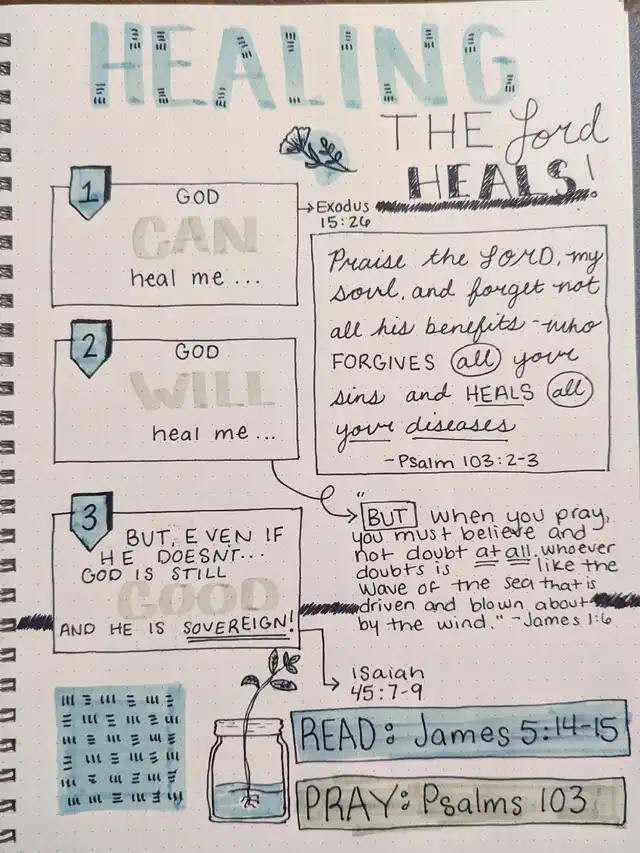 HEALING
THE Lord
HEALS!
1
GOD
CAN
heal me ...
Exodus
15:26
Praise the LORD, my
soul, and forget not
all his benefits - who
FORGIVES all your
sins and HEALS all
your diseases
-Psalm 103:2-3
2
GOD
WILL
heal me...
"BUT when you pray,
you must believe and
not doubt at all. whoever
doubts is like the
wave of the sea that is
driven and blown about
by the wind." -James 1:6
3
BUT, EVEN IF
HE DOESN'T...
GOD IS STILL
GOOD
AND HE IS SOVEREIGN!
ISaiah
45:7-9
READ: James 5:14-15
PRAY: Psalms 103